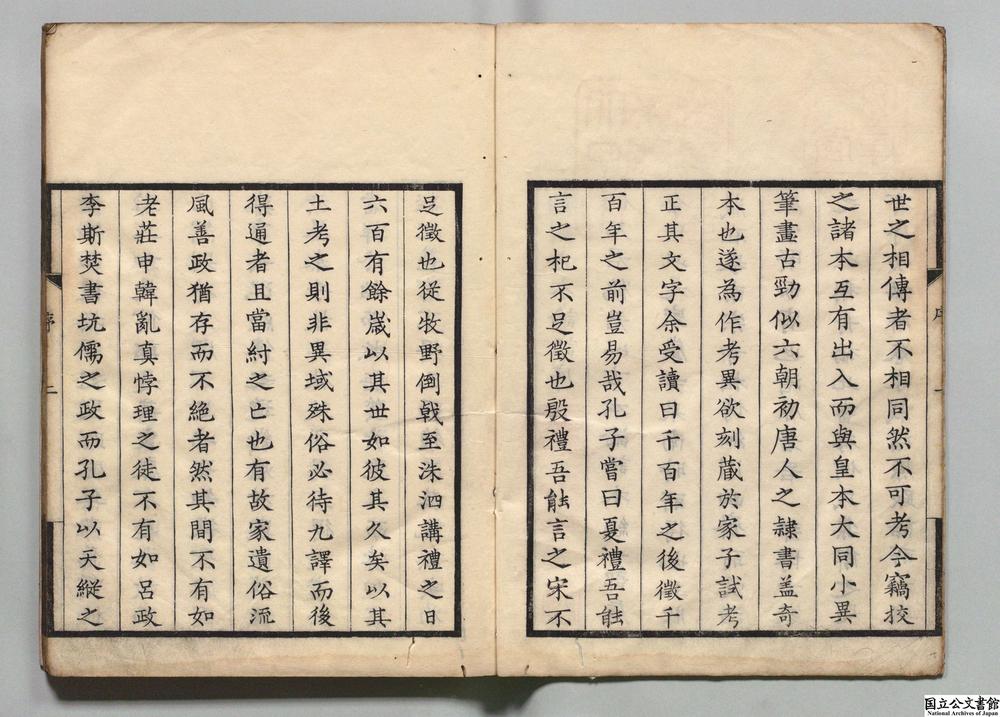 世之相傳者不相同然不可考今竊挍
之諸本互有出入而與皇本大同小異
筆畫古勁似六朝初唐人之隷書盖奇
本也遂為作考異欲刻蔵於家子試考
正其文字余受讀曰千百年之後徵千
百年之前豈易哉孔子嘗曰夏禮吾能
言之杞不足徵也殷禮吾能言之宋不
足徵也從牧野倒戟至洙泗講禮之日
六百有餘嵗以其世如彼其久矣以其
土考之則非異域殊俗必待九譯而後
得通者且當紂之亡也有故家遺俗流
風善政猶存而不絶者然其間不有如
老莊申韓亂真悖理之徒不有如呂政
李斯焚書坑儒之政而孔子以天縱之
序
二
国立公文書館
National Archives of Japan